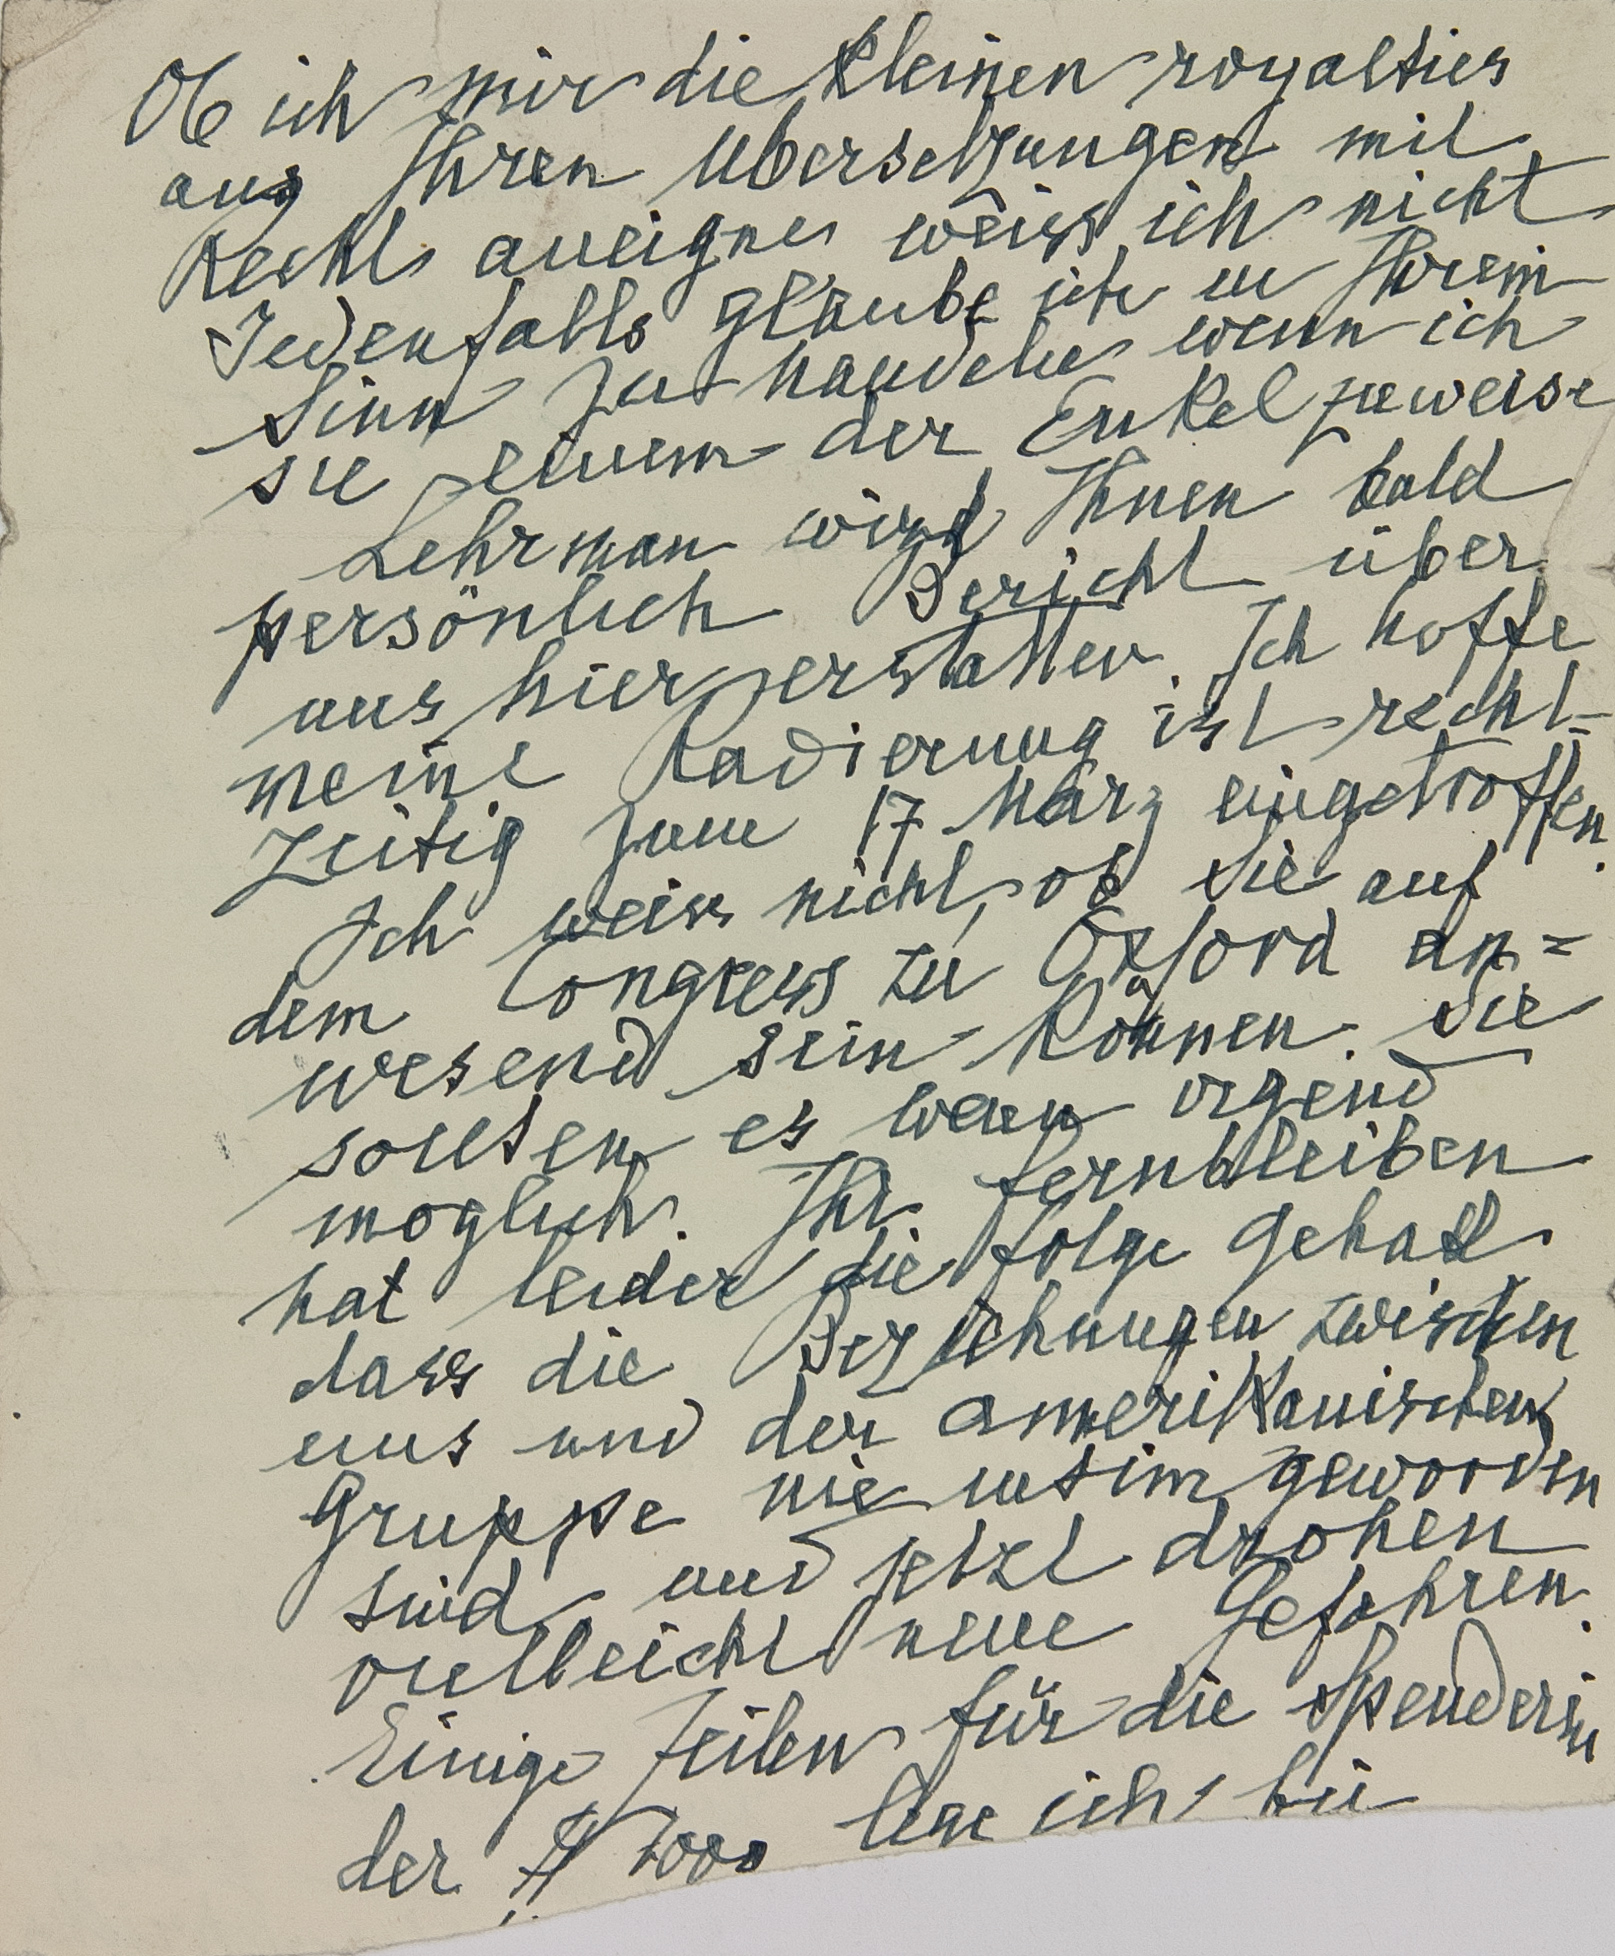 Ob ich mir die kleinen royalties
aus Ihren Übersetzungen mit
Recht aneigne weiss ich nicht
Jedenfalls glaube ich in Ihrem
Sinn zu handeln wenn ich
sie einem der Enkel zuweise
Lehrman wird Ihnen bald
persönlich Bericht über
uns hier erstatten. Ich hoffe
meine Radierung ist recht-
zeitig zum 17 März eingetroffen.
Ich weiss nicht, ob Sie auf
dem Congress zu Oxford an=
wesend sein können. Sie
sollten es wenn irgend
moglich. Ihr Fernbleiben
hat leider die Folge gehabt
dass die Beziehungen zwischen
uns und der amerikanischen
Gruppe nie intim geworden
sind und jetzt drohen
vielleicht neue Gefahren.
Einige Zeilen für die Spenderin
der $ 1000 lege ich bei